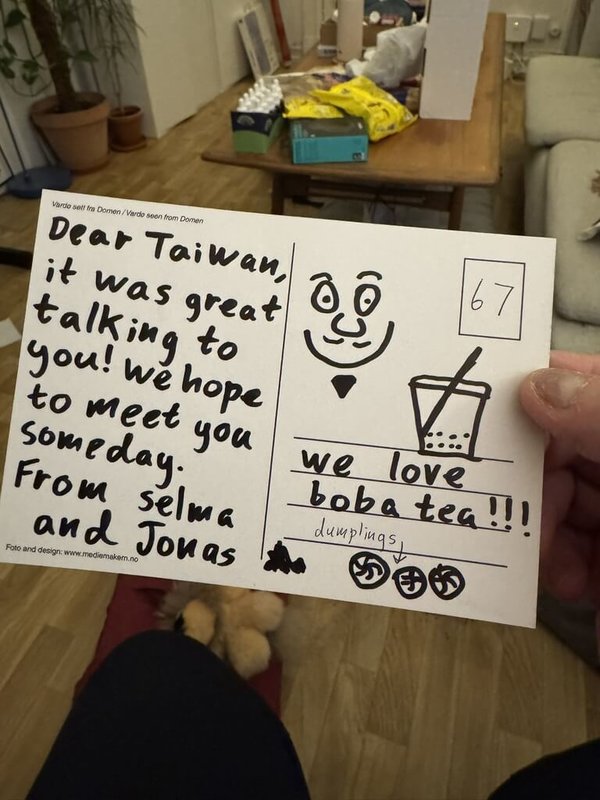 Vardø sett fra Domen / Vardø seen from Domen
Dear Taiwan,
it was great
talking to
you! We hope
to meet you
someday.
From selma
and Jonas
Foto and design: www.mediemakern.no
67
we love
boba tea!!!
dumplings